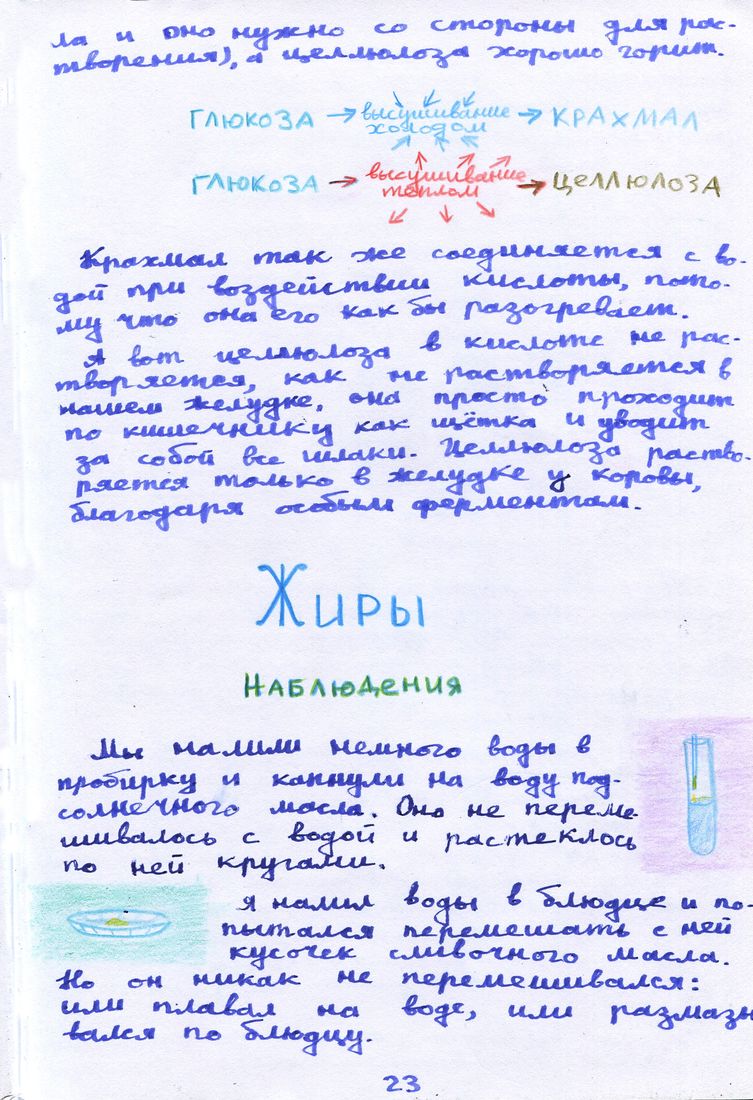 ла и оно нужно со стороны для рас-
творения), а целлюлоза хорошо горит.
ГЛЮКОЗА → высушивание холодом → КРАХМАЛ
ГЛЮКОЗА → высушивание теплом → ЦЕЛЛЮЛОЗА
Крахмал так же соединяется с во-
дой при воздействии кислоты, пото-
му что она его как бы разогревает.
А вот целлюлоза в кислоте не рас-
творяется, как не растворяется в
нашем желудке, она просто проходит
по кишечнику как щётка и уводит
за собой все шлаки. Целлюлоза раство-
ряется только в желудке у коровы,
благодаря особым ферментам.
ЖИРЫ
НАБЛЮДЕНИЯ
Мы налили немного воды в
пробирку и капнули на воду под-
солнечного масла. Оно не переме-
шивалось с водой и растеклось
по ней кругами.
Я налил воды в блюдце и по-
пытался перемешать с ней
кусочек сливочного масла.
Но он никак не перемешивался:
или плавал на воде, или размазы
вался по блюдцу.
23